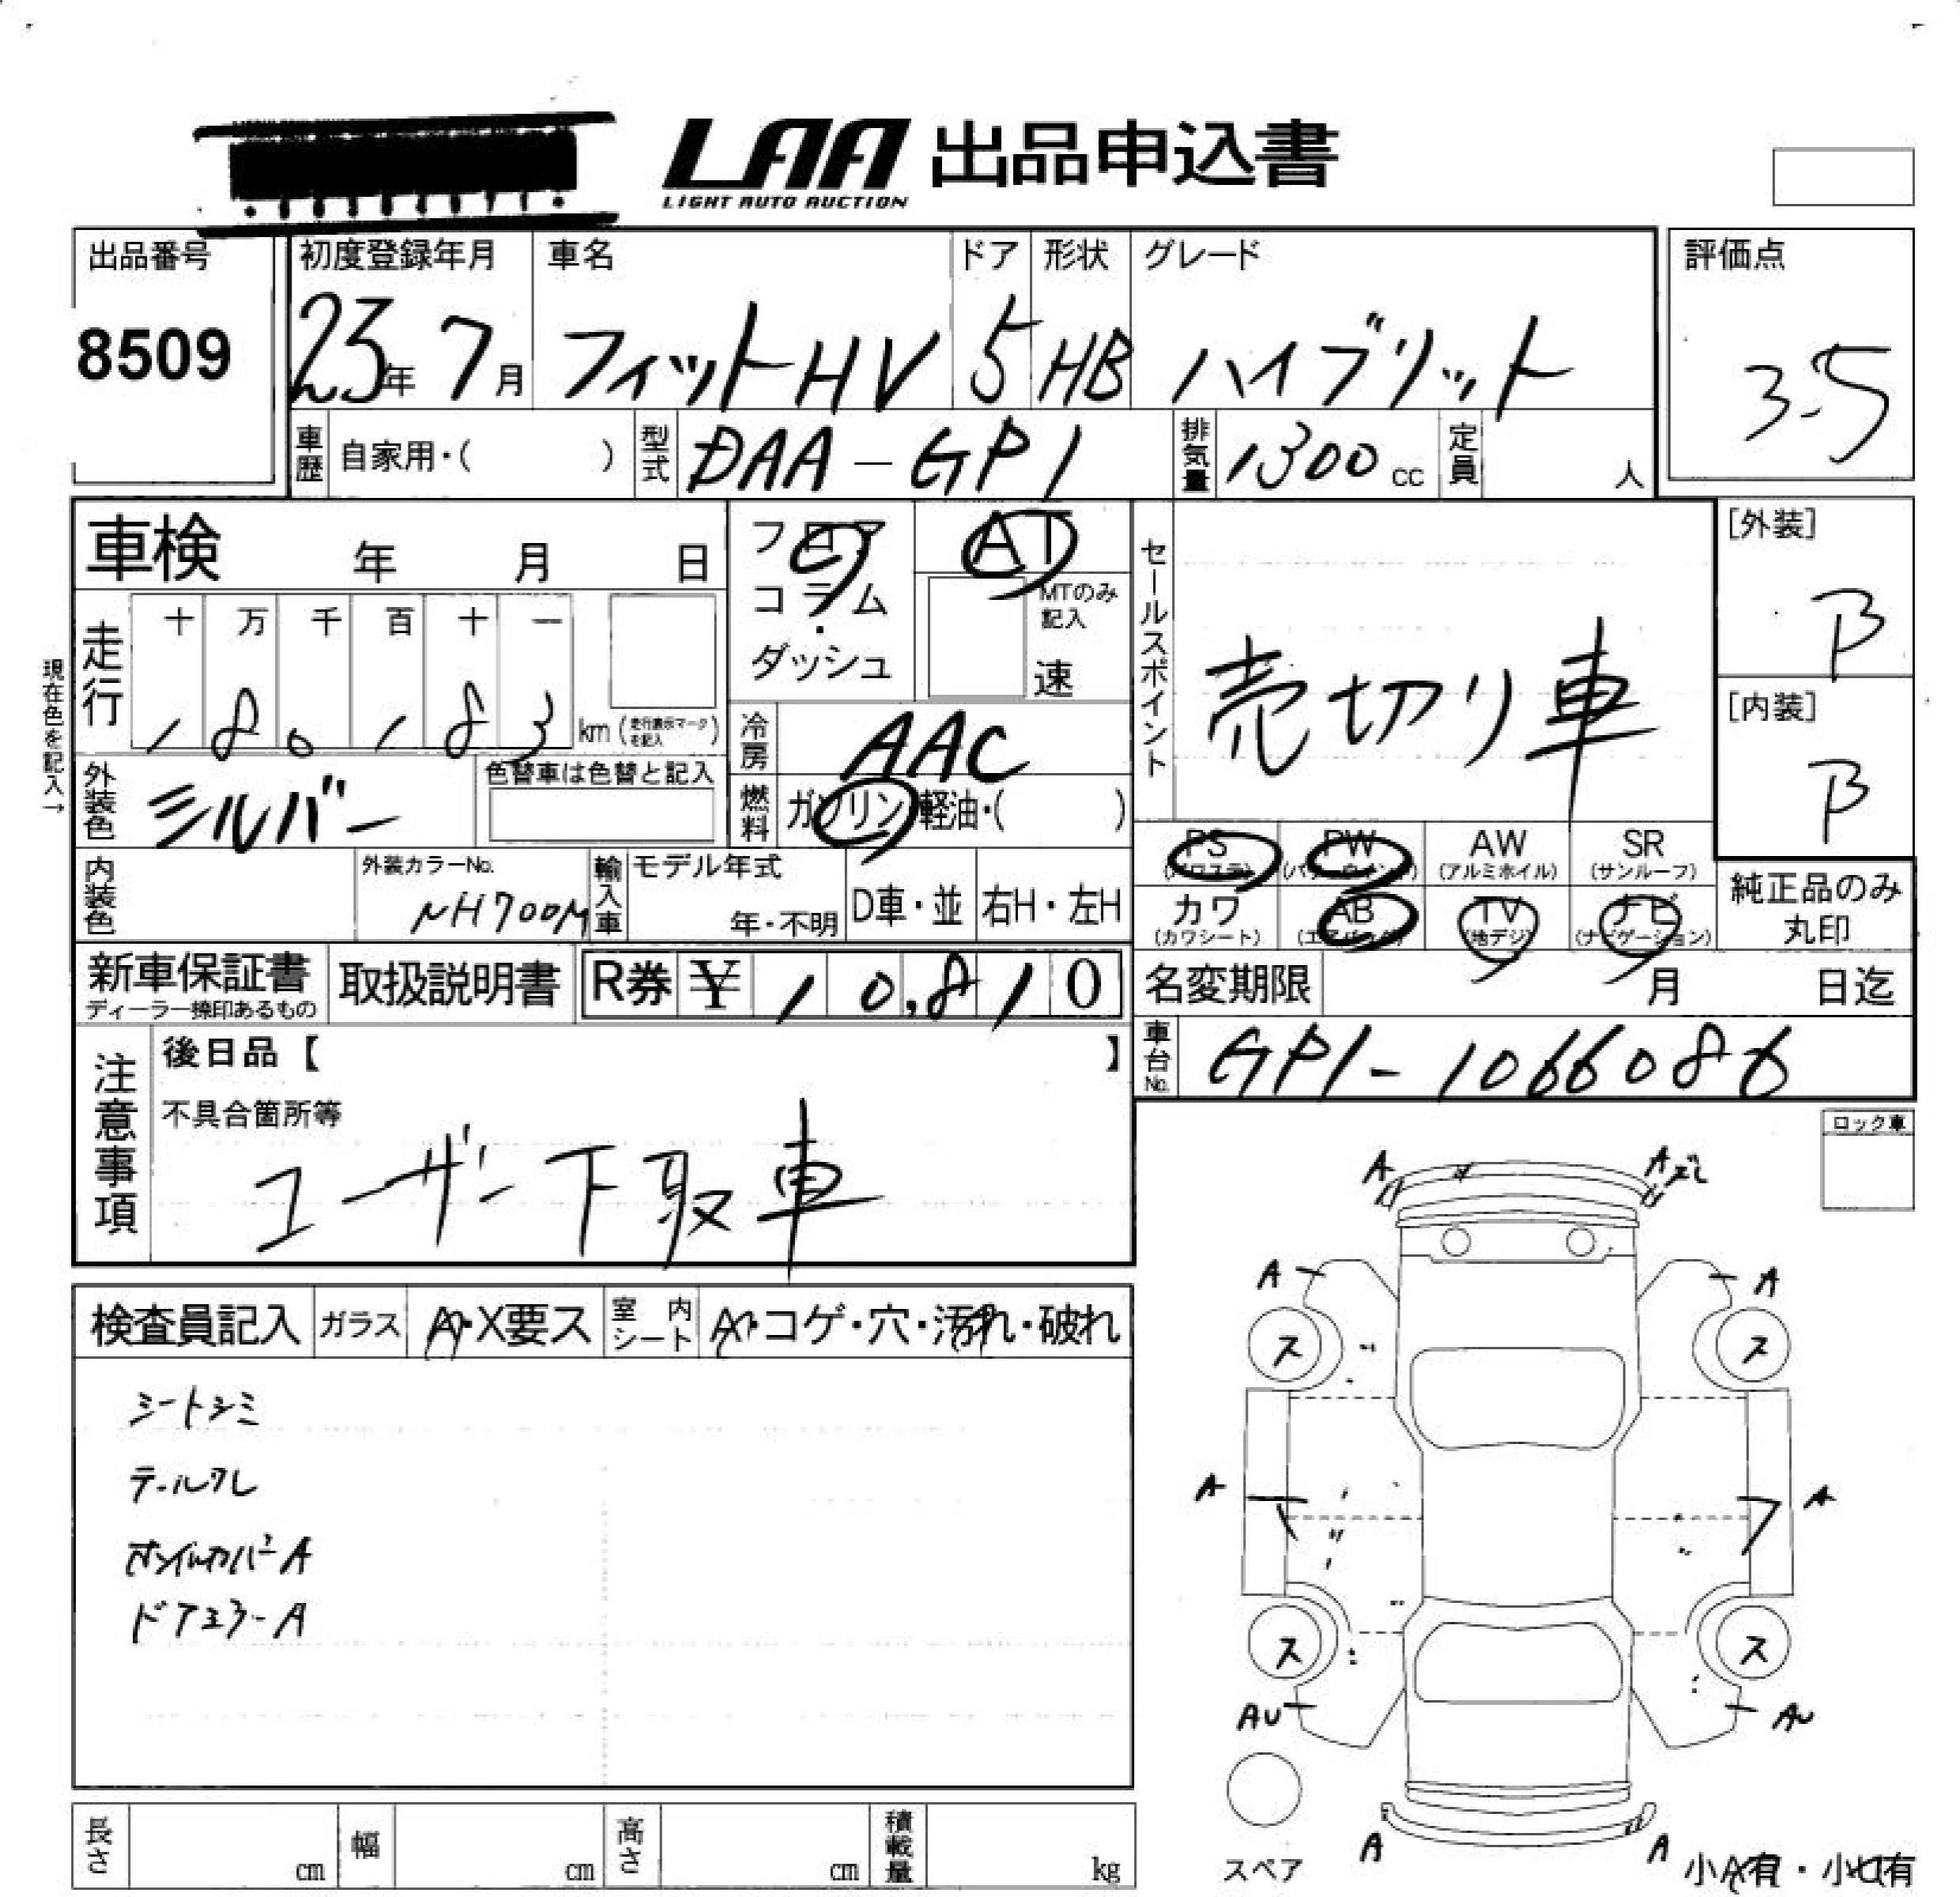 LAA 出品申込書
LIGHT AUTO AUCTION
出品番号
8509
初度登録年月
23年 7月
車名
フィットHV
ドア
5
形状
HB
グレード
ハイブリット
評価点
3.5
車歴 自家用・( )
型式 DAA-GP1
排気量 1300 cc
定員 人
車検 年 月 日
フロア
コラム
・
ダッシュ
AT
MTのみ
記入
速
セールスポイント
売切り車
[外装]
B
[内装]
B
現在色を記入→
走行 十 万 千 百 十 一
180183 km (走行表示マークを記入)
冷房 AAC
外装色 シルバー
色替車は色替と記入
燃料 ガソリン・軽油・( )
内装色
外装カラーNo.
NH700M
輸入車
モデル年式
年・不明
D車・並
右H・左H
PS (パワステ)
PW (パワーウインド)
AW (アルミホイル)
SR (サンルーフ)
カワ (カワシート)
AB (エアバッグ)
TV (地デジ)
ナビ (ナビゲーション)
純正品のみ
丸印
新車保証書
ディーラー捺印あるもの
取扱説明書
R券 ¥ 10,810
名変期限 月 日迄
車台No. GP1-1066086
注意事項
後日品【 】
不具合箇所等
ユーザー下取車
ロック車
検査員記入
ガラス A・X要ス
室内シート A・コゲ・穴・汚れ・破れ
シートシミ
テールワレ
ホイルカバーA
ドアミラーA
A
Aズレ
A
A
ス
ス
A
A
ス
ス
AU
AU
A
A
スペア
小A有・小U有
長さ cm
幅 cm
高さ cm
積載量 kg